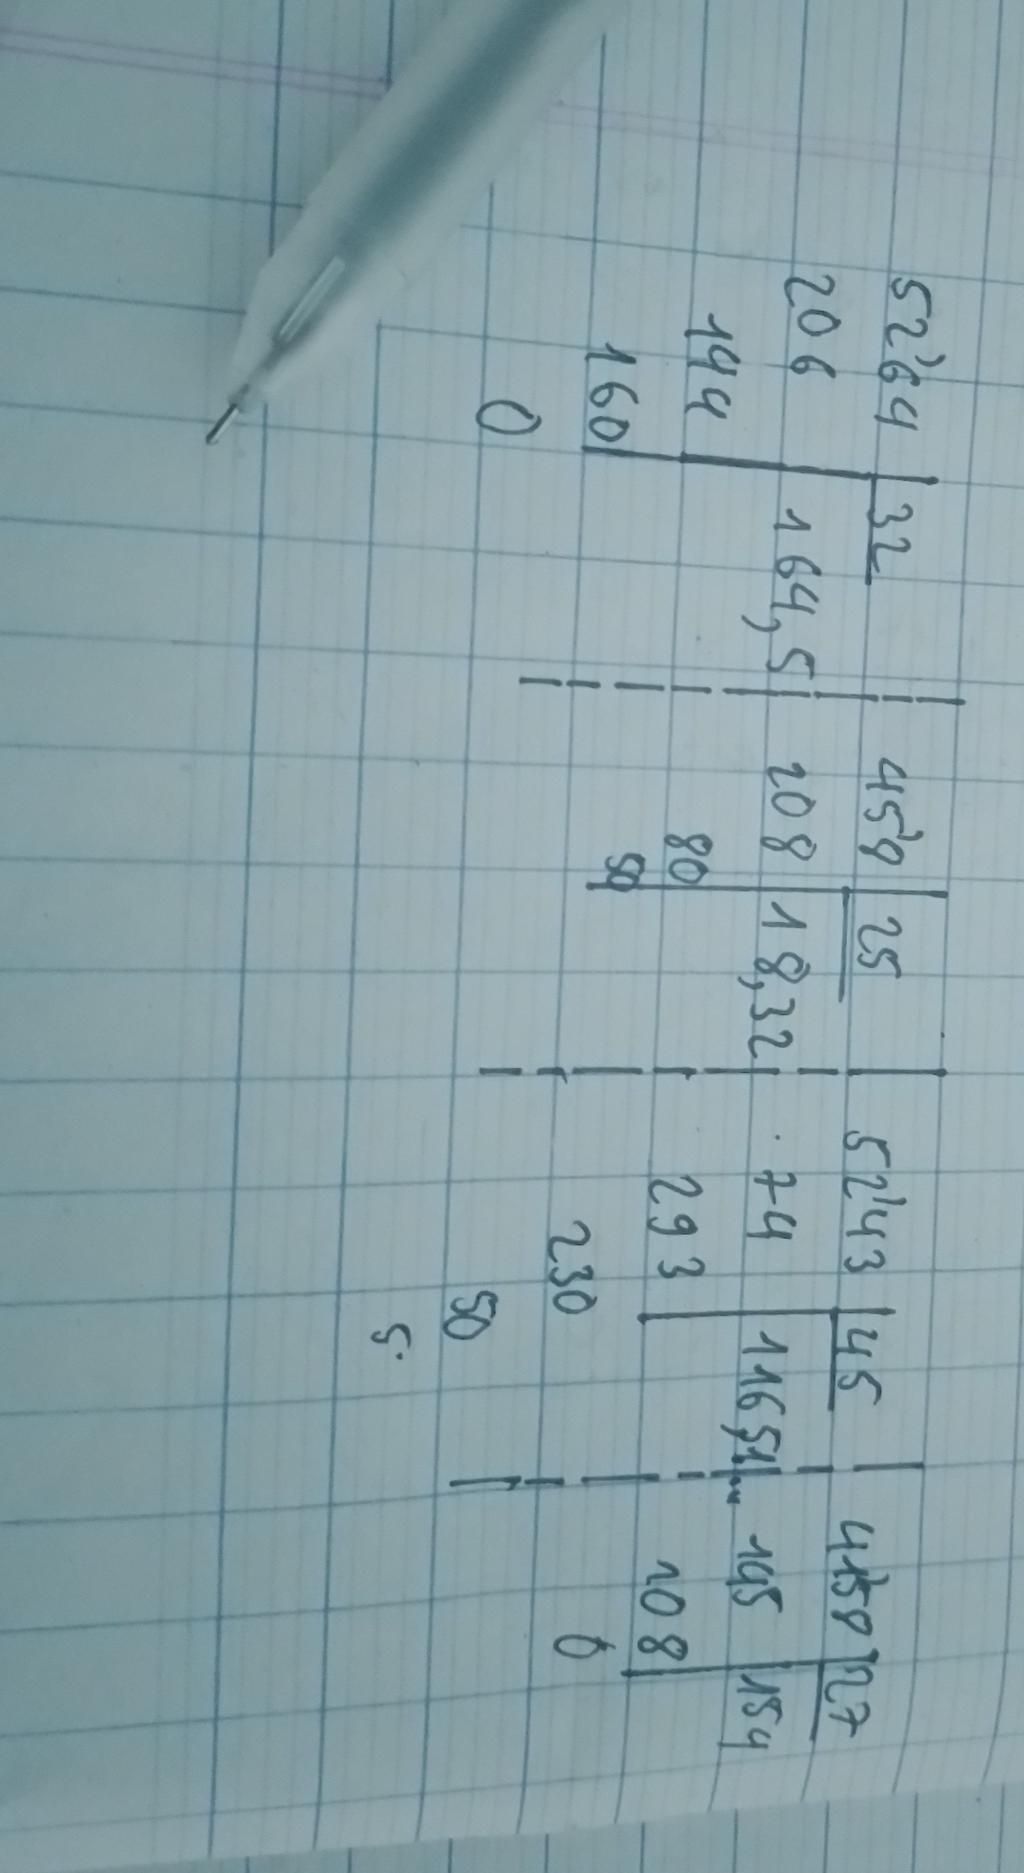 52'64 | 32
206 | 164,5
144
160
0
45'8 | 25
208 | 18,32
80
50
52'43 | 45
74 | 116,51...
293
230
50
5.
41'58 | 27
145 | 154
108
0